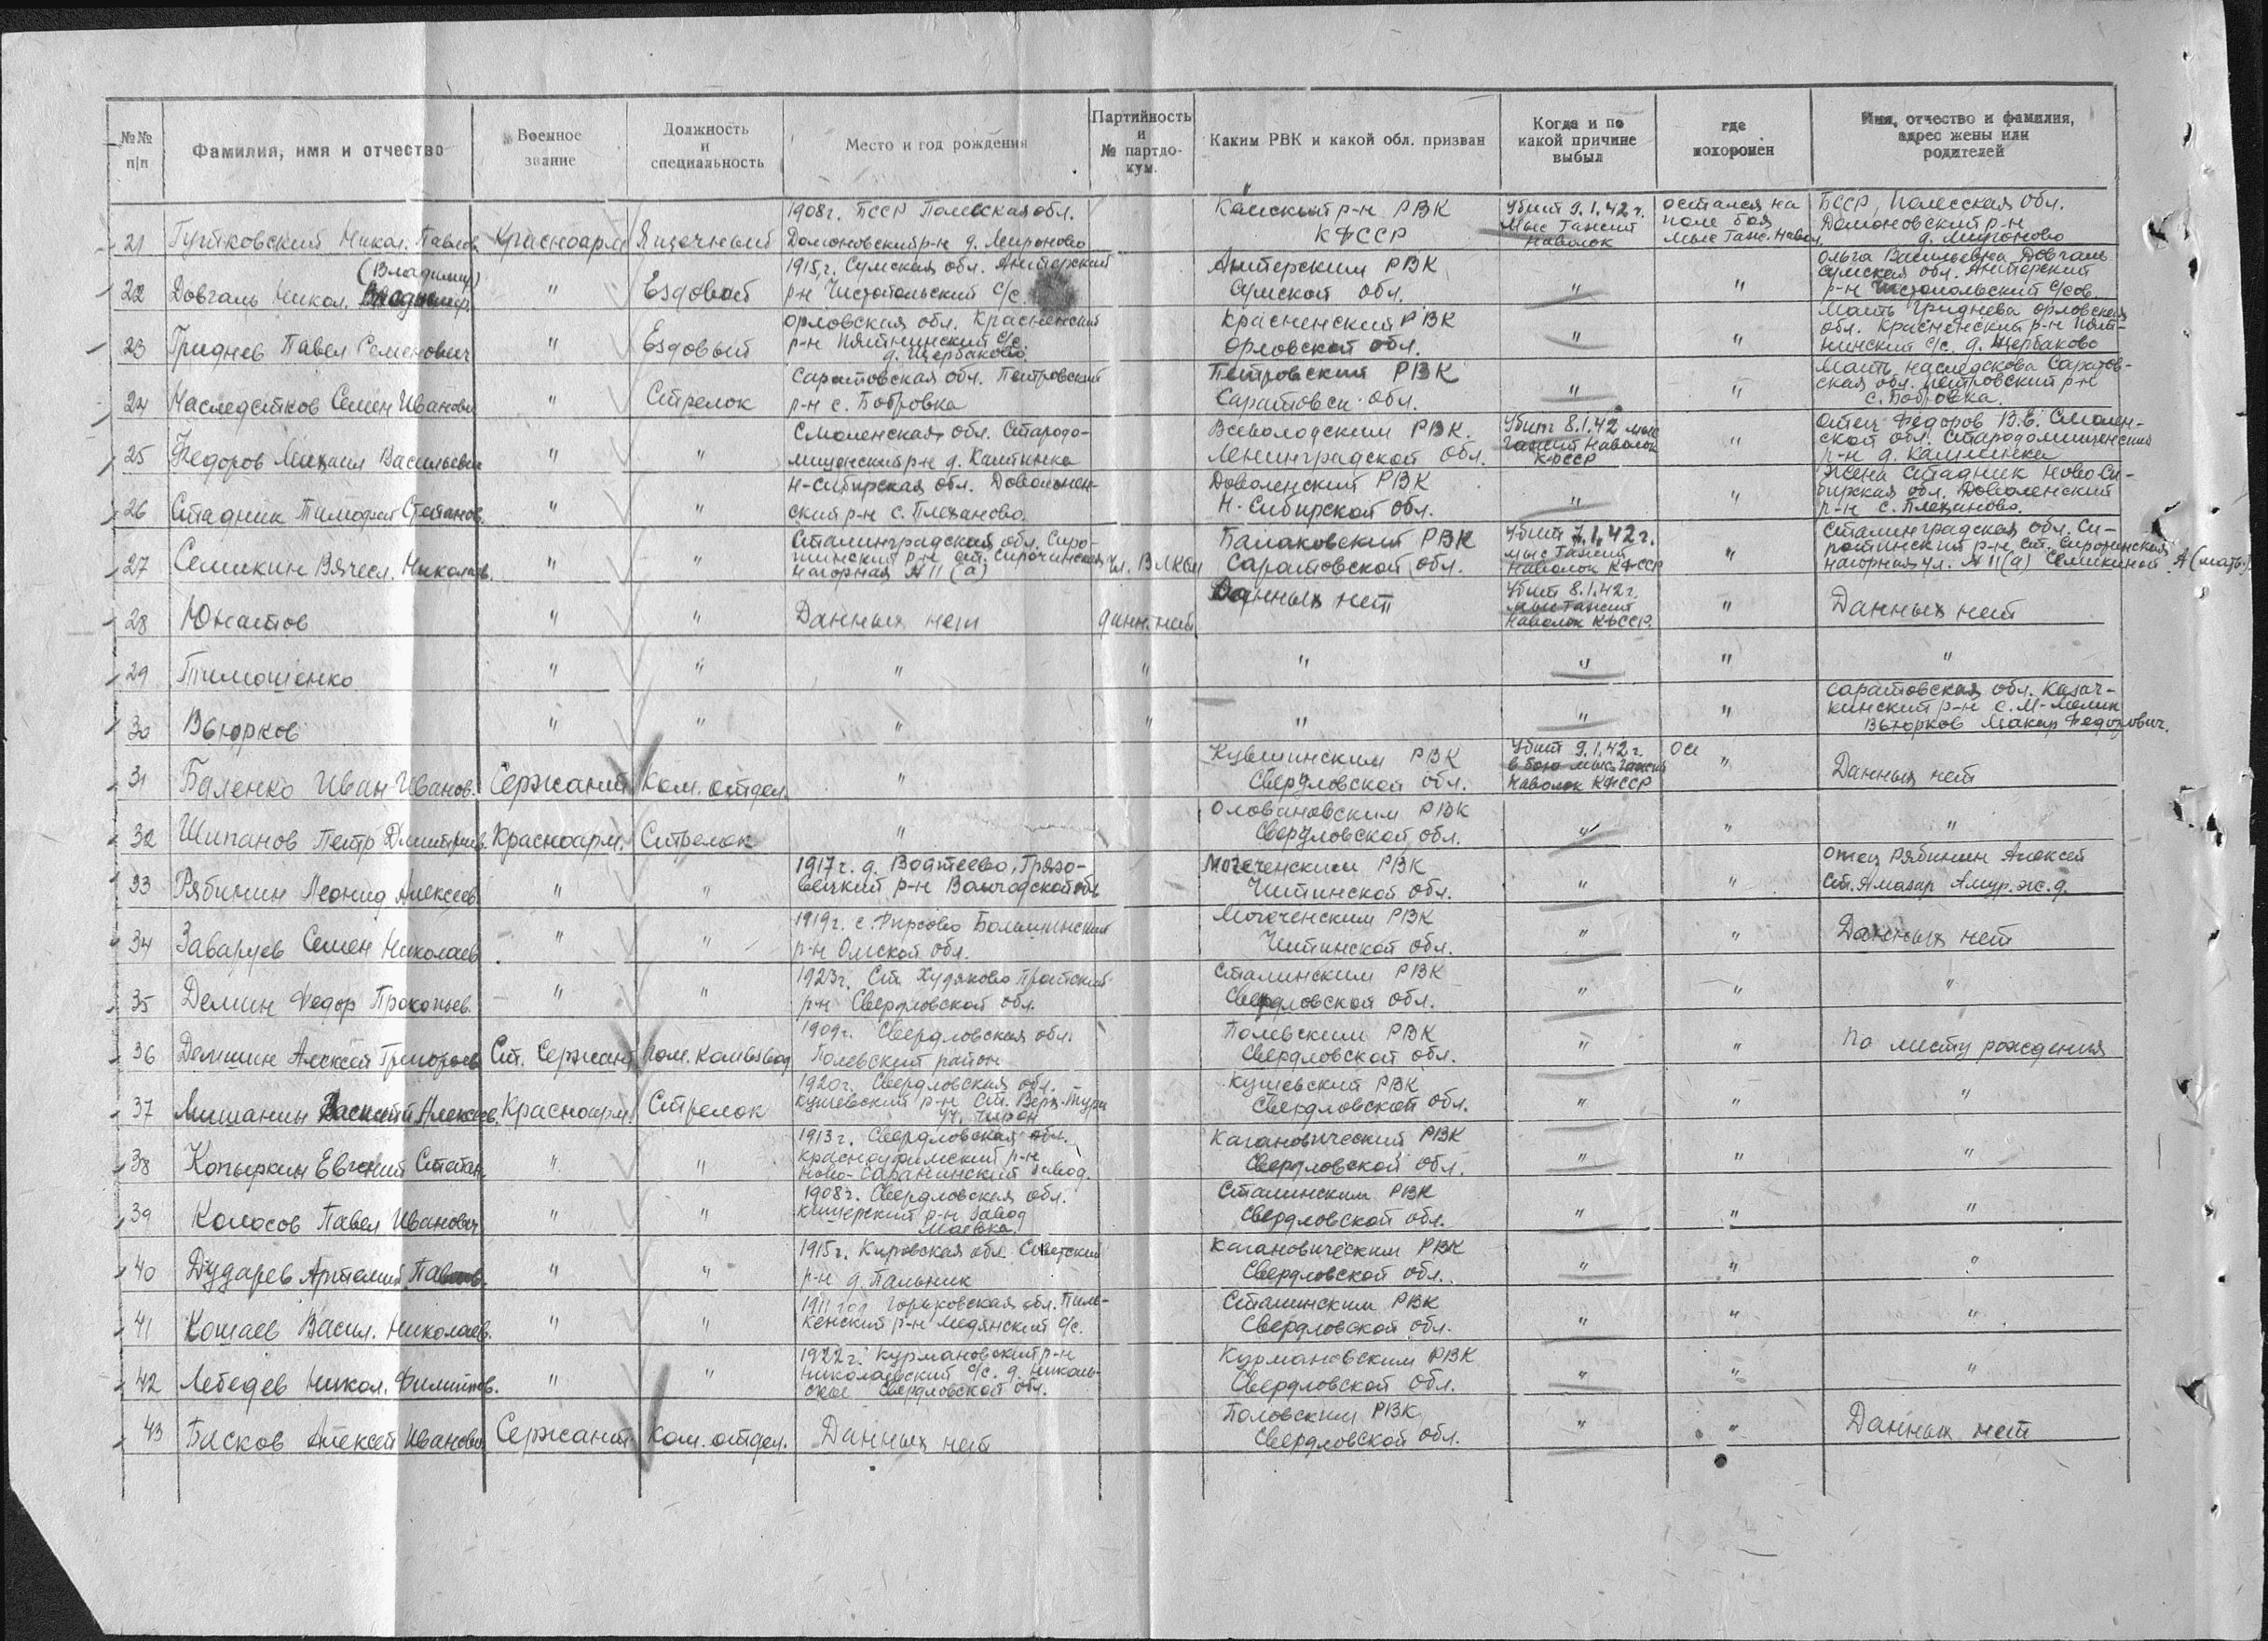 №№ п/п | Фамилия, имя и отчество | Военное звание | Должность и специальность | Место и год рождения | Партийность и № партдокум. | Каким РВК и какой обл. призван | Когда и по какой причине выбыл | где похоронен | Имя, отчество и фамилия, адрес жены или родителей
21 | Гутковский Никол. Павлов. | Красноарм | Ящечный | 1908г. БССР Полесская обл. Домоновский р-н д. Мироново | | Кемский р-н РВК КФССР | Убит 9.1.42 г. Мыс Гажий Наволок | остался на поле боя мыс Гаж. Навол. | БССР, Полесская обл. Домоновский р-н д. Мироново
22 | Довгаль Никол. (Владимир) | " | Ездовой | 1915г. Сумская обл. Р-н Чистопольский с/с. | | РВК Сумской обл. | " | " | Ольга Васильевна Довгаль Сумская обл. р-н Чистопольский с/сов.
23 | Гриднев Павел Семенович | " | Ездовый | Орловская обл. Красненский р-н Пятницкий с/с. д. Щербаково | | Красненский РВК Орловской обл. | " | " | Мать Гриднева Орловская обл. Красненский р-н с/с. д. Щербаково
24 | Наследсков Семен Иванович | " | Стрелок | Саратовская обл. Петровский р-н с. Бобровка | | Петровский РВК Саратовск. обл. | " | " | Мать Наследскова Саратовская обл. Петровский р-н с. Бобровка.
25 | Федоров Михаил Васильевич | " | " | Смоленская обл. р-н д. Каштинка | | Всеволодским РВК. Ленинградской обл. | Убит 8.1.42 мыс Гажий Наволок КФССР | " | Отец Федоров В.Е. Смоленской обл. р-н д.
26 | Стадник Тимофей Степанов. | " | " | Н-Сибирская обл. р-н с. Плеханово. | | Доволенский РВК Н-Сибирской обл. | " | " | Жена Стадник Ново-Сибирская обл. Доволенский р-н с. Плеханово.
27 | Семикин Вячесл. Николаев. | " | " | Сталинградская обл. Сиротинский р-н ст. Сиротинская Нагорная № 11 (а) | чл. ВЛКСМ | Балаковский РВК Саратовской обл. | Убит 7.1.42г. мыс Гажий Наволок КФССР | " | Сталинградская обл. Сиротинский р-н, ст. Сиротинская Нагорная ул. № 11 (а) Семикиной А (мать)
28 | Юнатов | " | " | Данных нет | данн. нет | Данных нет | Убит 8.1.42г. мыс Гажий Наволок КФССР. | " | Данных нет
29 | Тимошенко | " | " | " | " | " | " | " | "
30 | Вьюрков | " | " | " | " | " | " | " | Саратовская обл. Казачкинский р-н с. М-Мелик Вьюрков Макар Федорович.
31 | Баленко Иван Иванов. | Сержант | Ком. отдел. | " | | Кувшинским РВК Свердловской обл. | Убит 9.1.42г. в бою мыс Гажий Наволок КФССР | Ост " | Данных нет
32 | Шипанов Петр Дмитриев. | Красноарм. | Стрелок | " | | Оловановским РВК Свердловской обл. | " | " | "
33 | Рябинин Леонид Алексеев. | " | " | 1917г. д. Грязовецкий р-н Вологодской обл. | | Могоченским РВК Читинской обл. | " | " | Отец Рябинин Алексей ст. Амазар Амур. ж.д.
34 | Заваруев Семен Николаев | " | " | 1919г. с. Фирсово р-н Омской обл. | | Могоченским РВК Читинской обл. | " | " | Данных нет
35 | Демин Федор Прокопьев. | " | " | 1923г. Ст. Худяково р-н Свердловской обл. | | Сталинским РВК Свердловской обл. | " | " | "
36 | Демшин Алексей Григорьев | Ст. Сержант | Пом. Комвзвод | 1909г. Свердловская обл. Полевский район | | Полевским РВК Свердловской обл. | " | " | По месту рождения
37 | Мишанин Василий Алексеев. | Красноарм. | Стрелок | 1920г. Свердловская обл. Кушевский р-н Ст. Верх-Тура | | Кушевский РВК Свердловской обл. | " | " | "
38 | Копыркин Евгений Степан. | " | " | 1913г. Свердловская обл. Красноуфимский р-н Ново-Саранинский завод. | | Кагановический РВК Свердловской обл. | " | " | "
39 | Колосов Павел Иванович | " | " | 1908г. Свердловская обл. р-н завод | | Сталинским РВК Свердловской обл. | " | " | "
40 | Дударев Артемий Павлов. | " | " | 1915г. Кировская обл. Советский р-н д. Пальник | | Кагановическим РВК Свердловской обл. | " | " | "
41 | Кошаев Васил. Николаев. | " | " | 1911 год Горьковская обл. р-н Медянский с/с. | | Сталинским РВК Свердловской обл. | " | " | "
42 | Лебедев Никол. Филиппов. | " | " | 1922г. Курмановский р-н Николаевский с/с. д. Никольское Свердловской обл. | | Курмановским РВК Свердловской обл. | " | " | "
43 | Бисков Алексей Иванович | Сержант. | Ком. отдел. | Данных нет | | Половским РВК Свердловской обл. | " | " | Данных нет